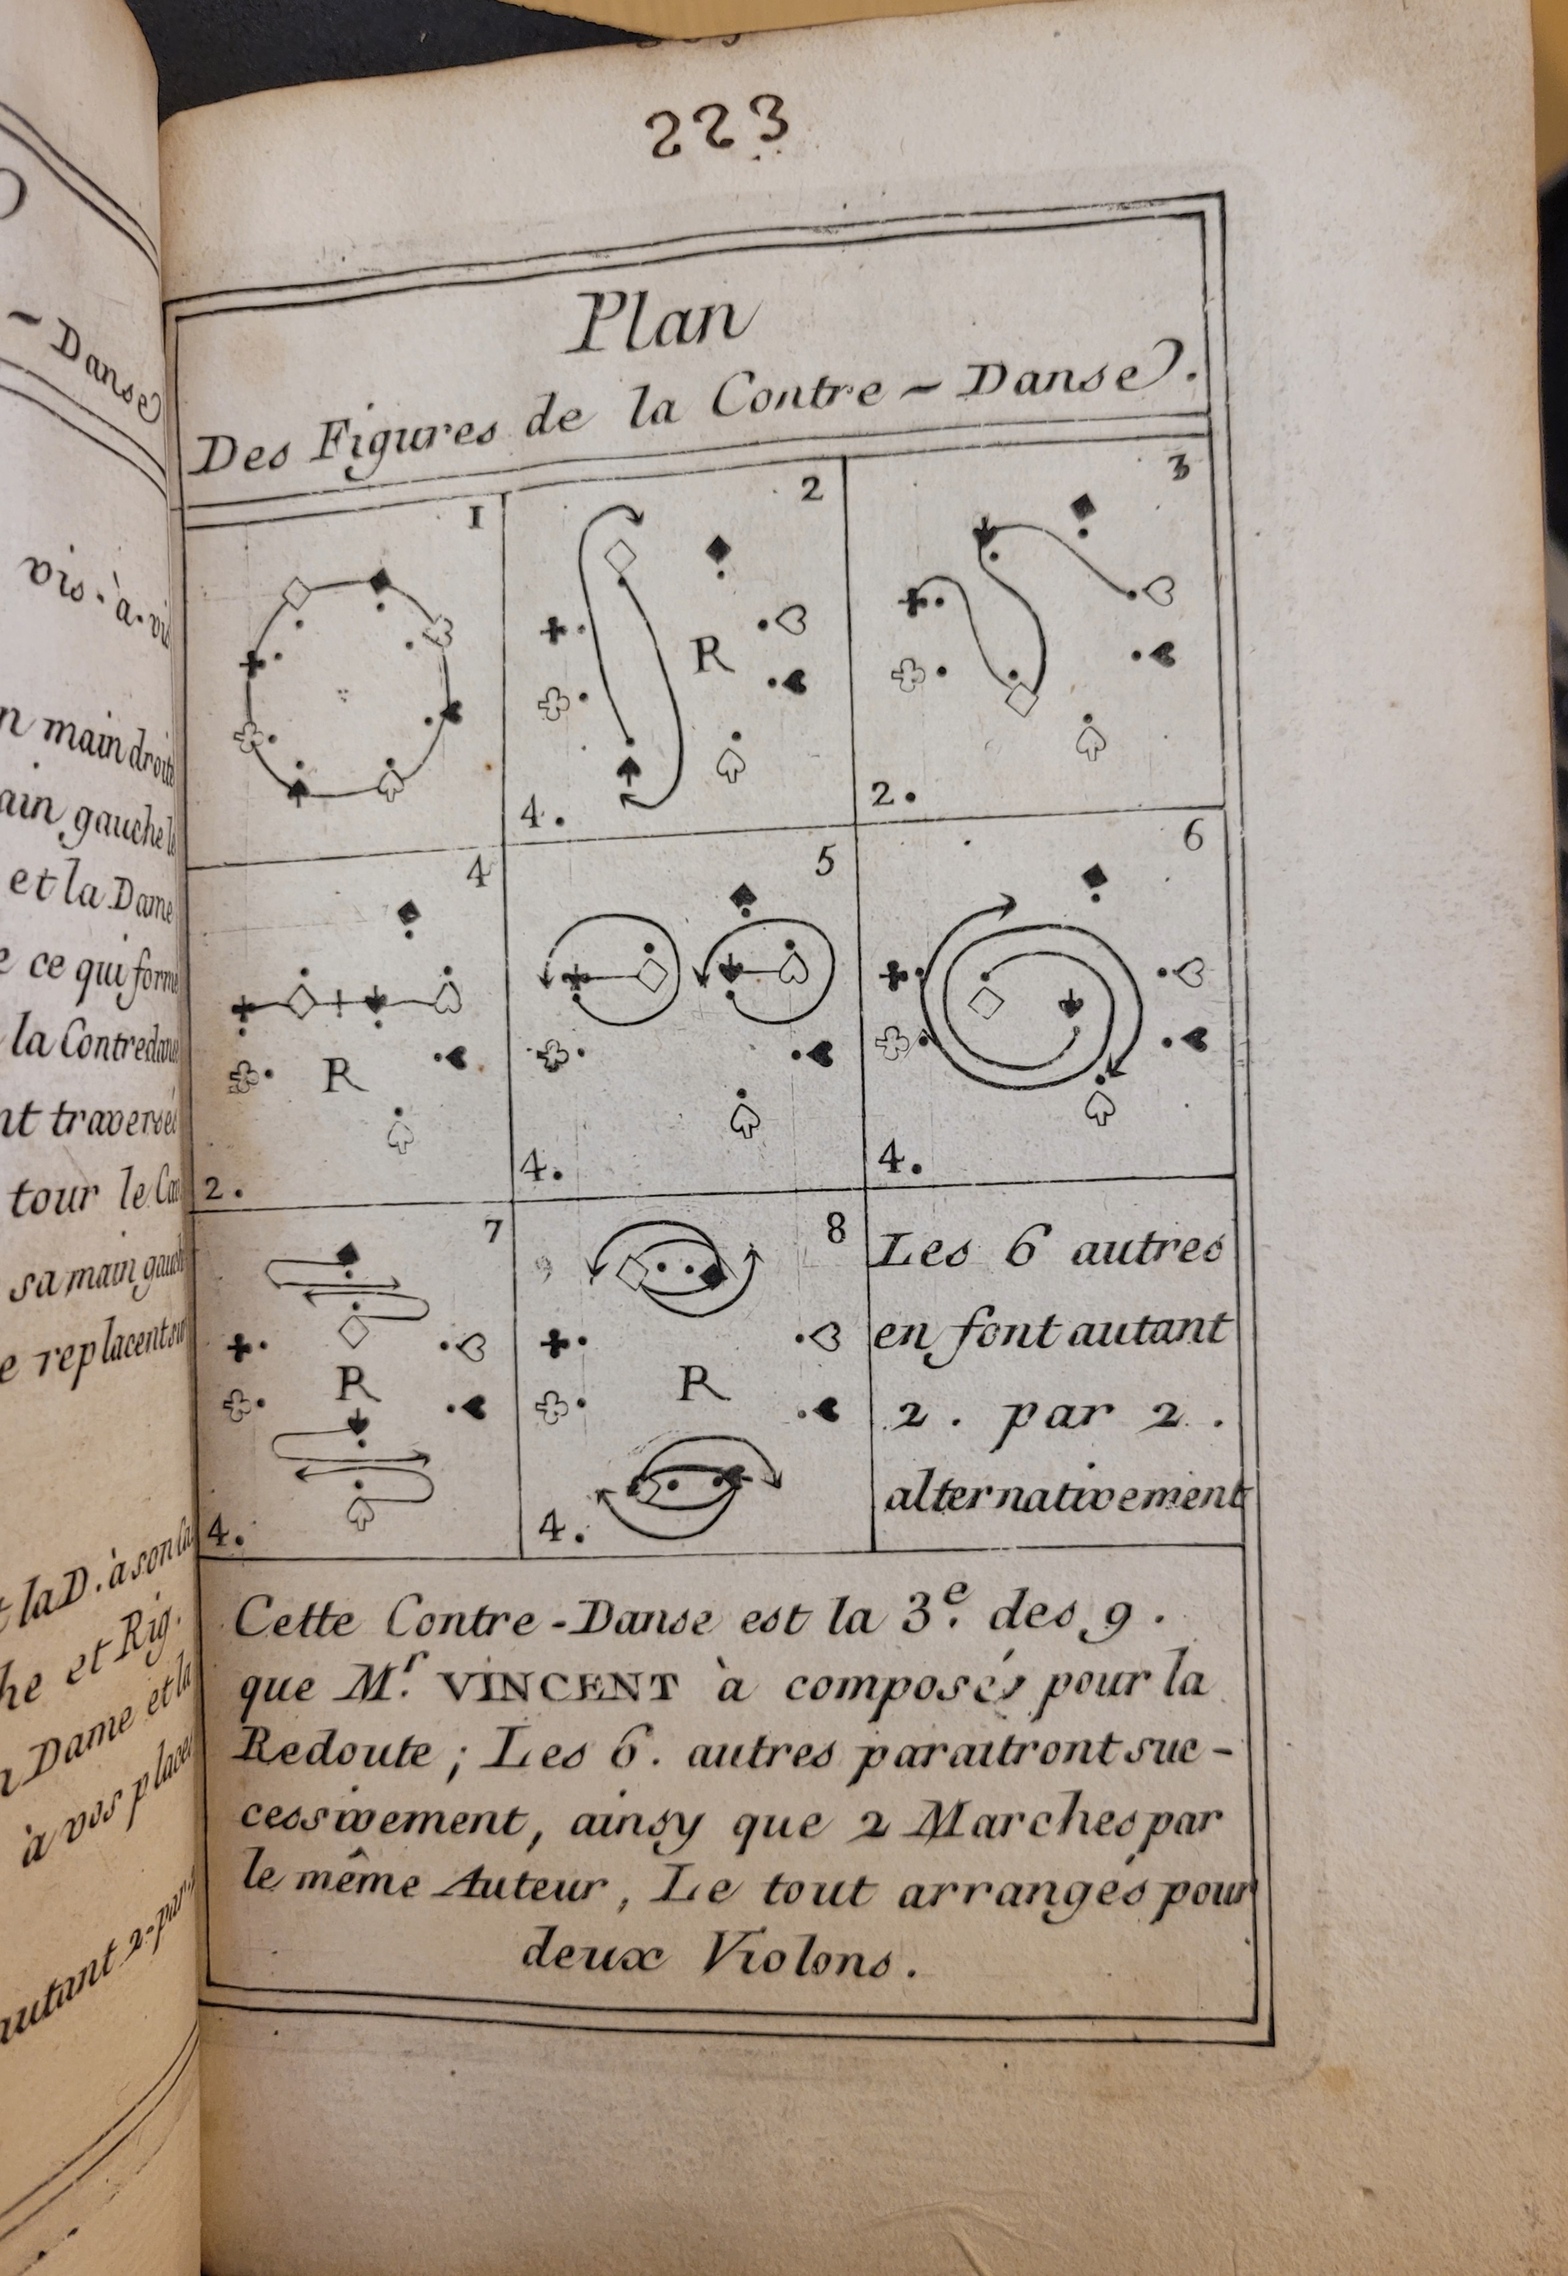 - Danse
vis-à-vi
n main droite
ain gauche l
et la Dame
e ce qui forme
la Contredans
nt traversés
tour le Ca
sa main gauch
e replacent su
t la D. à son Ca
he et Rig.
Dame et la
à vos places
autant 2. par
223
Plan
Des Figures de la Contre - Danse.
1
2
R
4.
3
2.
4
R
2.
5
4.
6
4.
7
R
4.
8
R
4.
Les 6 autres
en font autant
2. par 2.
alternativement
Cette Contre-Danse est la 3e. des 9.
que Mr. VINCENT à composés pour la
Redoute ; Les 6. autres paraitront suc-
cessivement, ainsy que 2 Marches par
le même Auteur, Le tout arrangés pour
deux Violons.